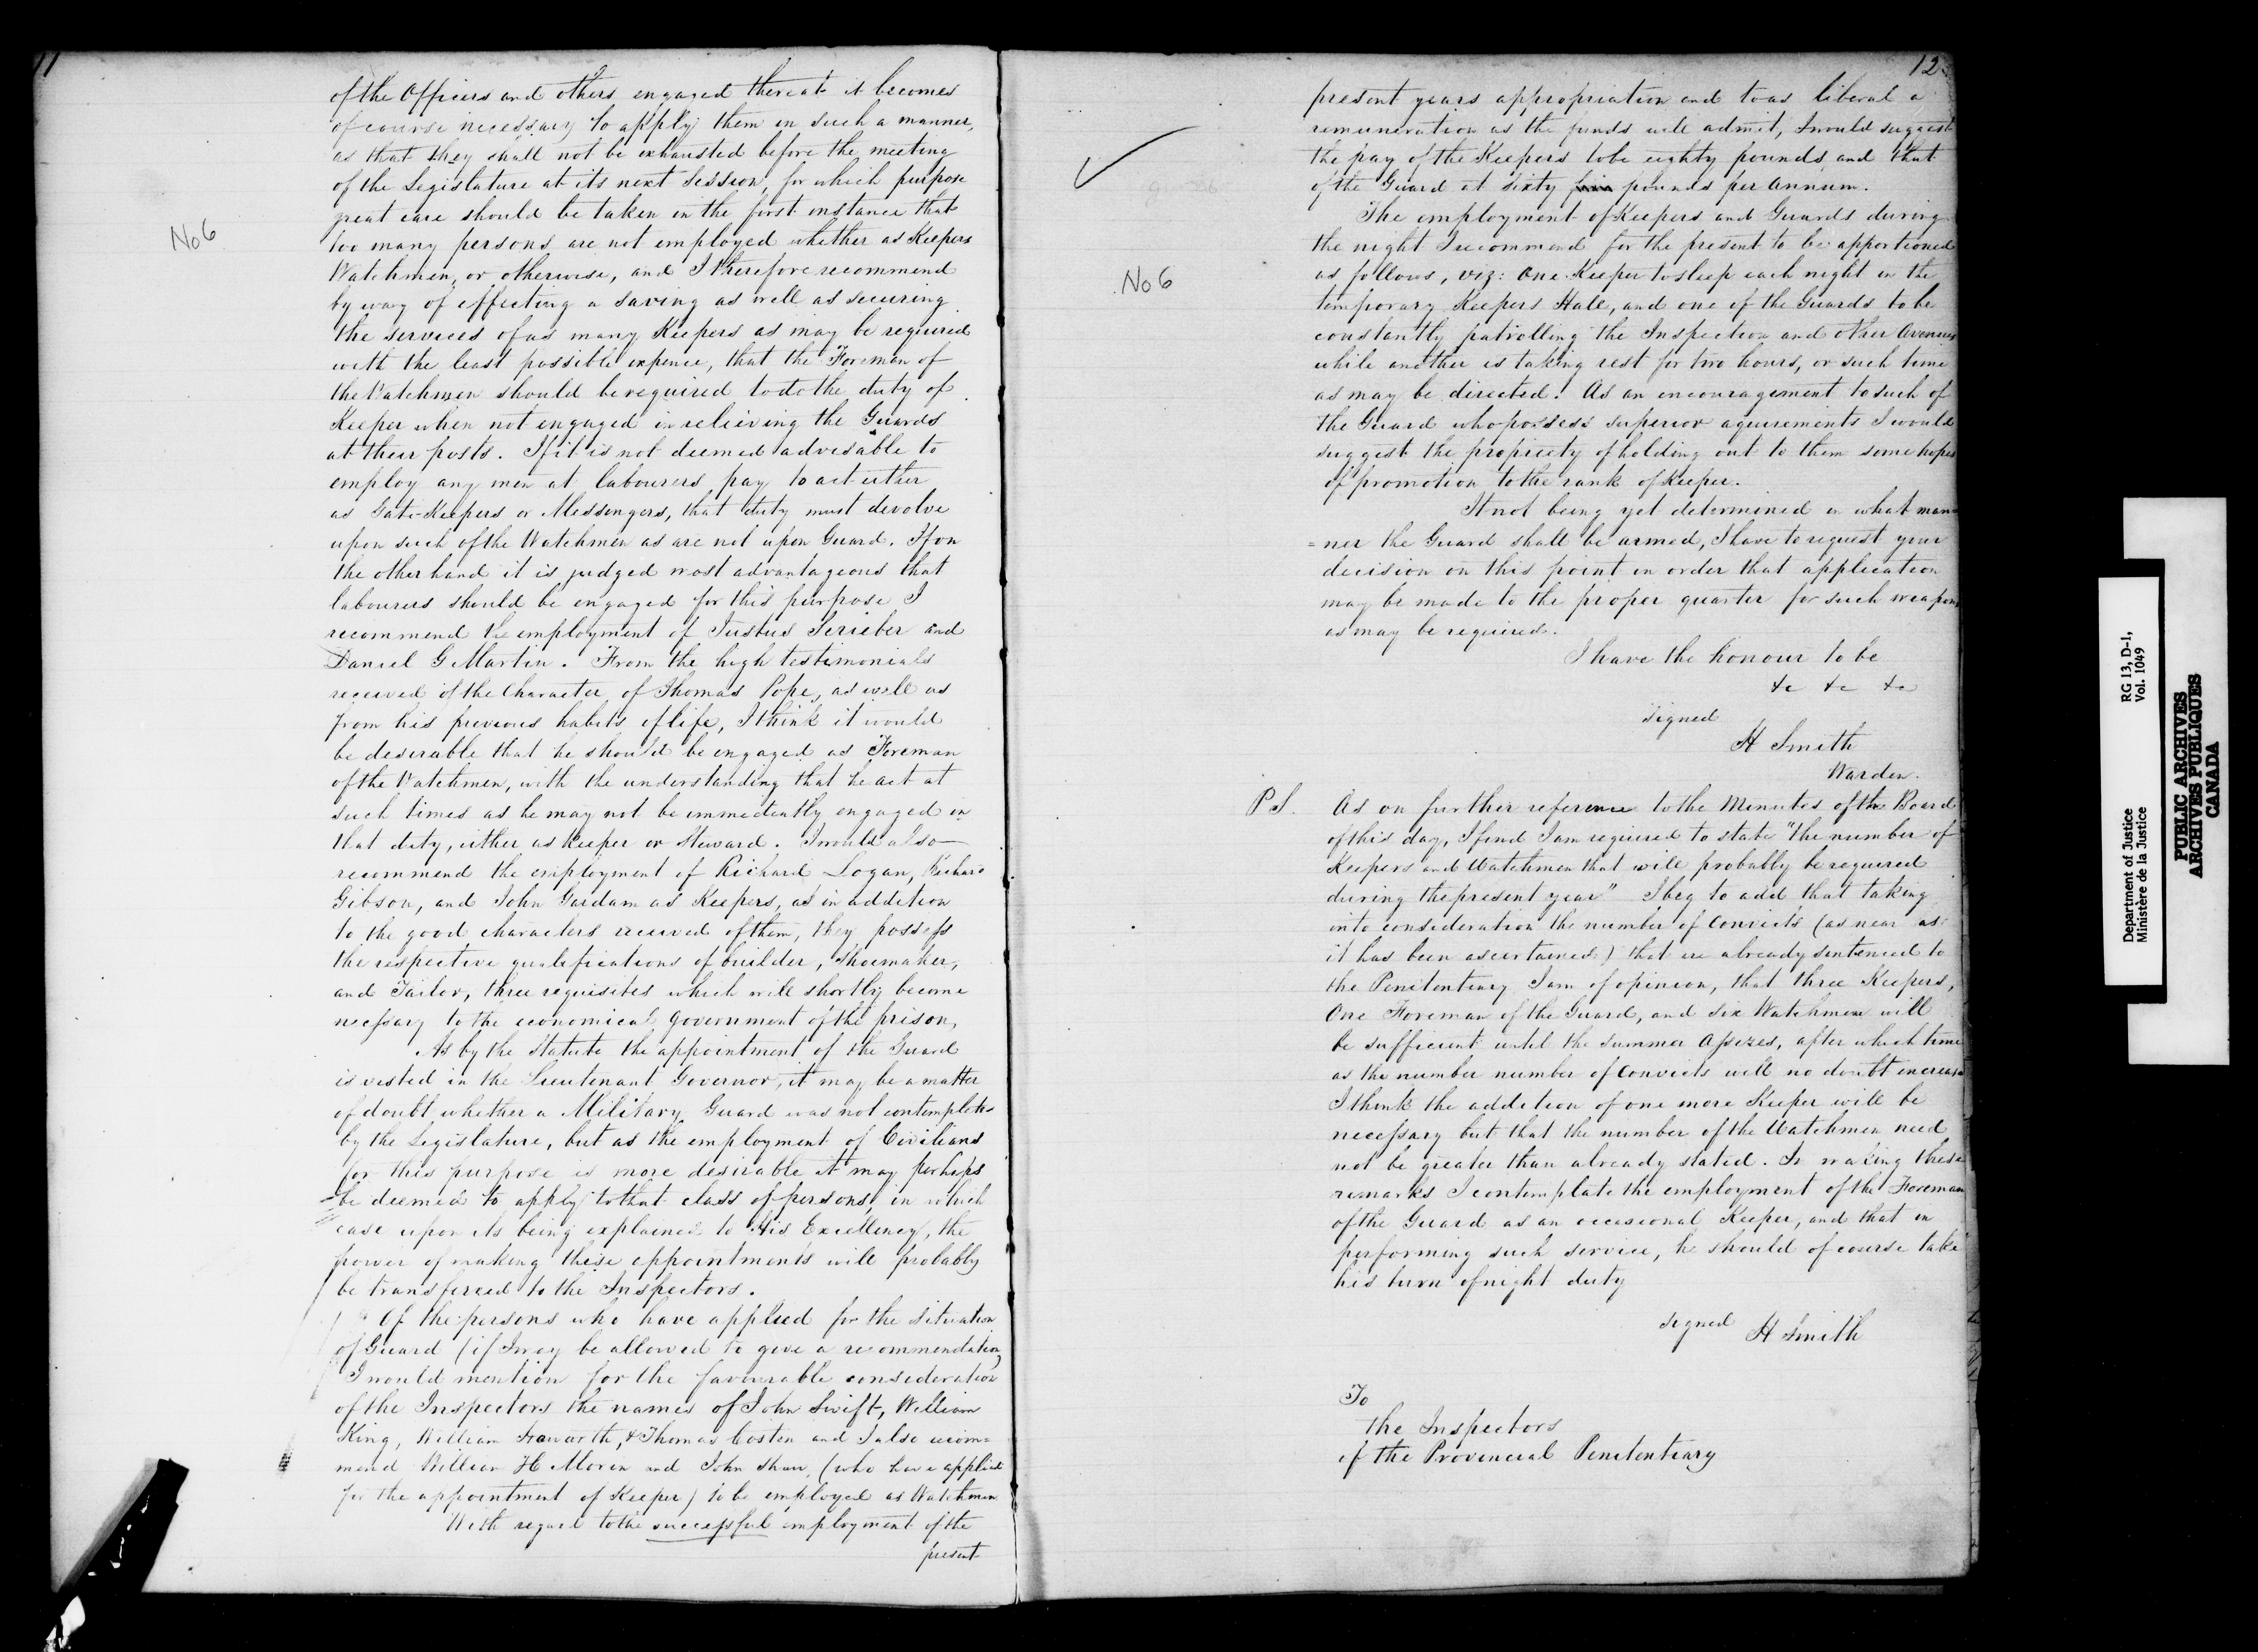 11
No 6
of the Officers and others engaged thereat it becomes
of course necessary to apply them in such a manner,
as that they shall not be exhausted before the meeting
of the Legislature at its next Session, for which purpose
great care should be taken in the first instance that
too many persons are not employed whether as Keepers
Watchmen, or otherwise, and I therefore recommend
by way of effecting a saving as well as securing
the services of as many Keepers as may be required
with the least possible expence, that the Foreman of
the Watchmen should be required to do the duty of
Keeper when not engaged in relieving the Guards
at their posts. If it is not deemed advisable to
employ any men at labourers pay to act either
as Gate-Keepers or Messengers, that duty must devolve
upon such of the Watchmen as are not upon Guard. If on
the other hand it is judged most advantageous that
labourers should be engaged for this purpose I
recommend the employment of Justus and
Daniel G Martin. From the high testimonials
received of the Character of Thomas Pope, as well as
from his previous habits of life, I think it would
be desirable that he should be engaged as Foreman
of the Watchmen, with the understanding that he act at
such times as he may not be immediately engaged in
that duty, either as Keeper or Steward. I would also
recommend the employment of Richard Logan, Richard
Gibson, and John Gardam as Keepers, as in addition
to the good characters received of them, they possess
the respective qualifications of builder, shoemaker,
and Tailor, three requisites which will shortly become
necessary to the economical government of the prison,
As by the Statute the appointment of the Guard
is vested in the Lieutenant Governor, it may be a matter
of doubt whether a Military Guard was not contemplated
by the Legislature, but as the employment of Civilians
for this purpose is more desirable it may perhaps
be deemed to apply to that class of persons, in which
case upon its being explained to His Excellency, the
power of making these appointments will probably
be transferred to the Inspectors.
Of the persons who have applied for the situation
of Guard (if I may be allowed to give a recommendation)
I would mention for the favourable consideration
of the Inspectors the names of John Swift, William
King, William & Thomas Costen and I also recom=
mend William H Moren and John Shaw, (who have applied
for the appointment of Keeper) to be employed as Watchmen
With regard to the successful employment of the
present
12
No 6
present years appropriation and to as liberal a
remuneration as the funds will admit, I would suggest
the pay of the Keepers to be eighty pounds, and that
of the Guard at sixty five pounds per annum.
The employment of Keepers and Guards during
the night I recommend for the present to be apportioned
as follows, viz: One Keeper to sleep each night in the
temporary Keepers Hall, and one of the Guards to be
constantly patrolling the Inspection and other Avenues
while another is taking rest for two hours, or such time
as may be directed. As an encouragement to such of
the Guard who possess superior aquirements I would
suggest the propriety of holding out to them some hopes
of promotion to the rank of Keeper.
It not being yet determined in what man=
=ner the Guard shall be armed, I have to request your
decision on this point in order that application
may be made to the proper quarter for such weapons
as may be required.
I have the honour to be
&c &c &c
signed
H Smith
Warden.
P S. As on further reference to the Minutes of the Board
of this day, I find I am required to state "the number of
Keepers and Watchmen that will probably be required
during the present year" I beg to add that taking
into consideration the number of Convicts (as near as
it has been ascertained) that are already sentenced to
the Penitentiary I am of opinion, that three Keepers,
One Foreman of the Guard, and six Watchmen will
be sufficient until the Summer Assizes, after which time
as the number number of Convicts will no doubt increase
I think the addition of one more Keeper will be
necessary but that the number of the Watchmen need
not be greater than already stated. In making these
remarks I contemplate the employment of the Foreman
of the Guard as an occasional Keeper, and that in
performing such service, he should of course take
his turn of night duty
signed H Smith
To
the Inspectors
of the Provincial Penitentiary
Department of Justice
Ministère de la Justice
RG 13, D-1,
Vol. 1049
PUBLIC ARCHIVES
ARCHIVES PUBLIQUES
CANADA